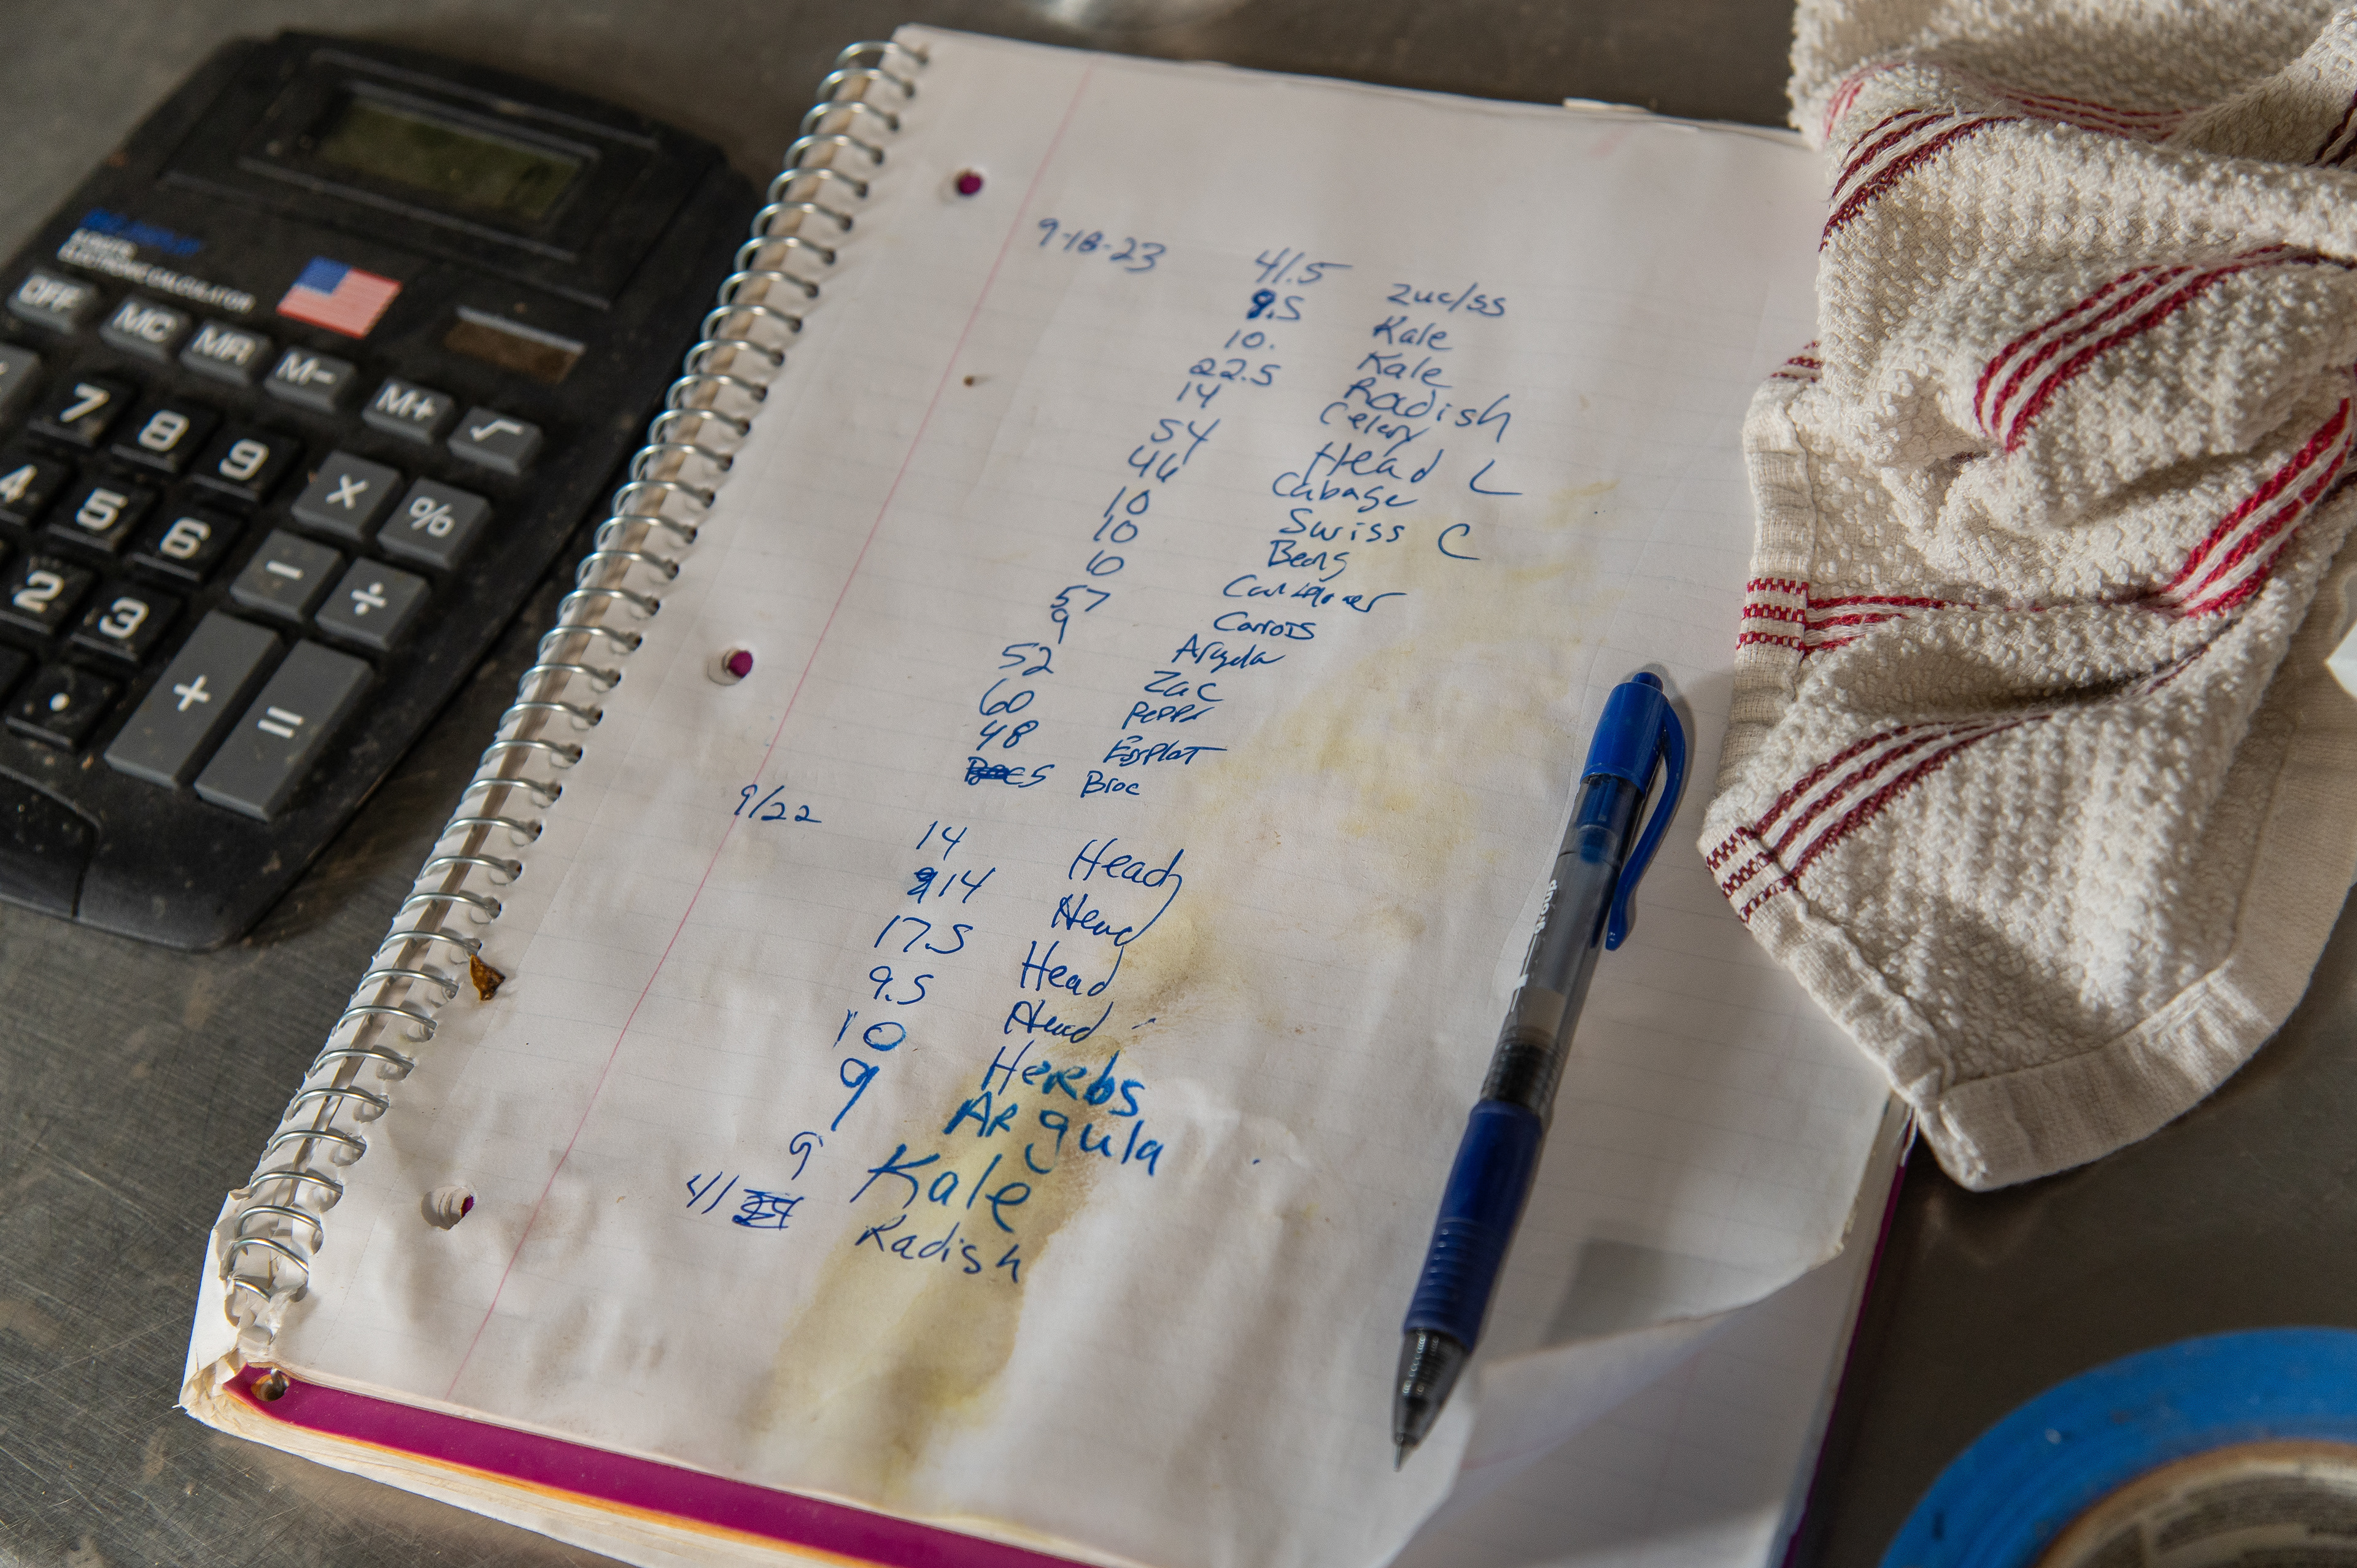 ELECTRONIC CALCULATOR
OFF MC MR M- M+ √
7 8 9 X %
4 5 6 - ÷
2 3 + =
.
9-18-23 41.5 Zuc/ss
9.5 Kale
10. Kale
22.5 Radish
14 Celery
54 Head L
46 Cabage
10 Swiss C
10 Beans
10
57 Carrots
9 Arugula
52 Zuc
60
48
5 Broc
9/22 14 Head
14 Head
17.5 Head
9.5 Head
10 Herbs
9 Argula
9 Kale
41 Radish